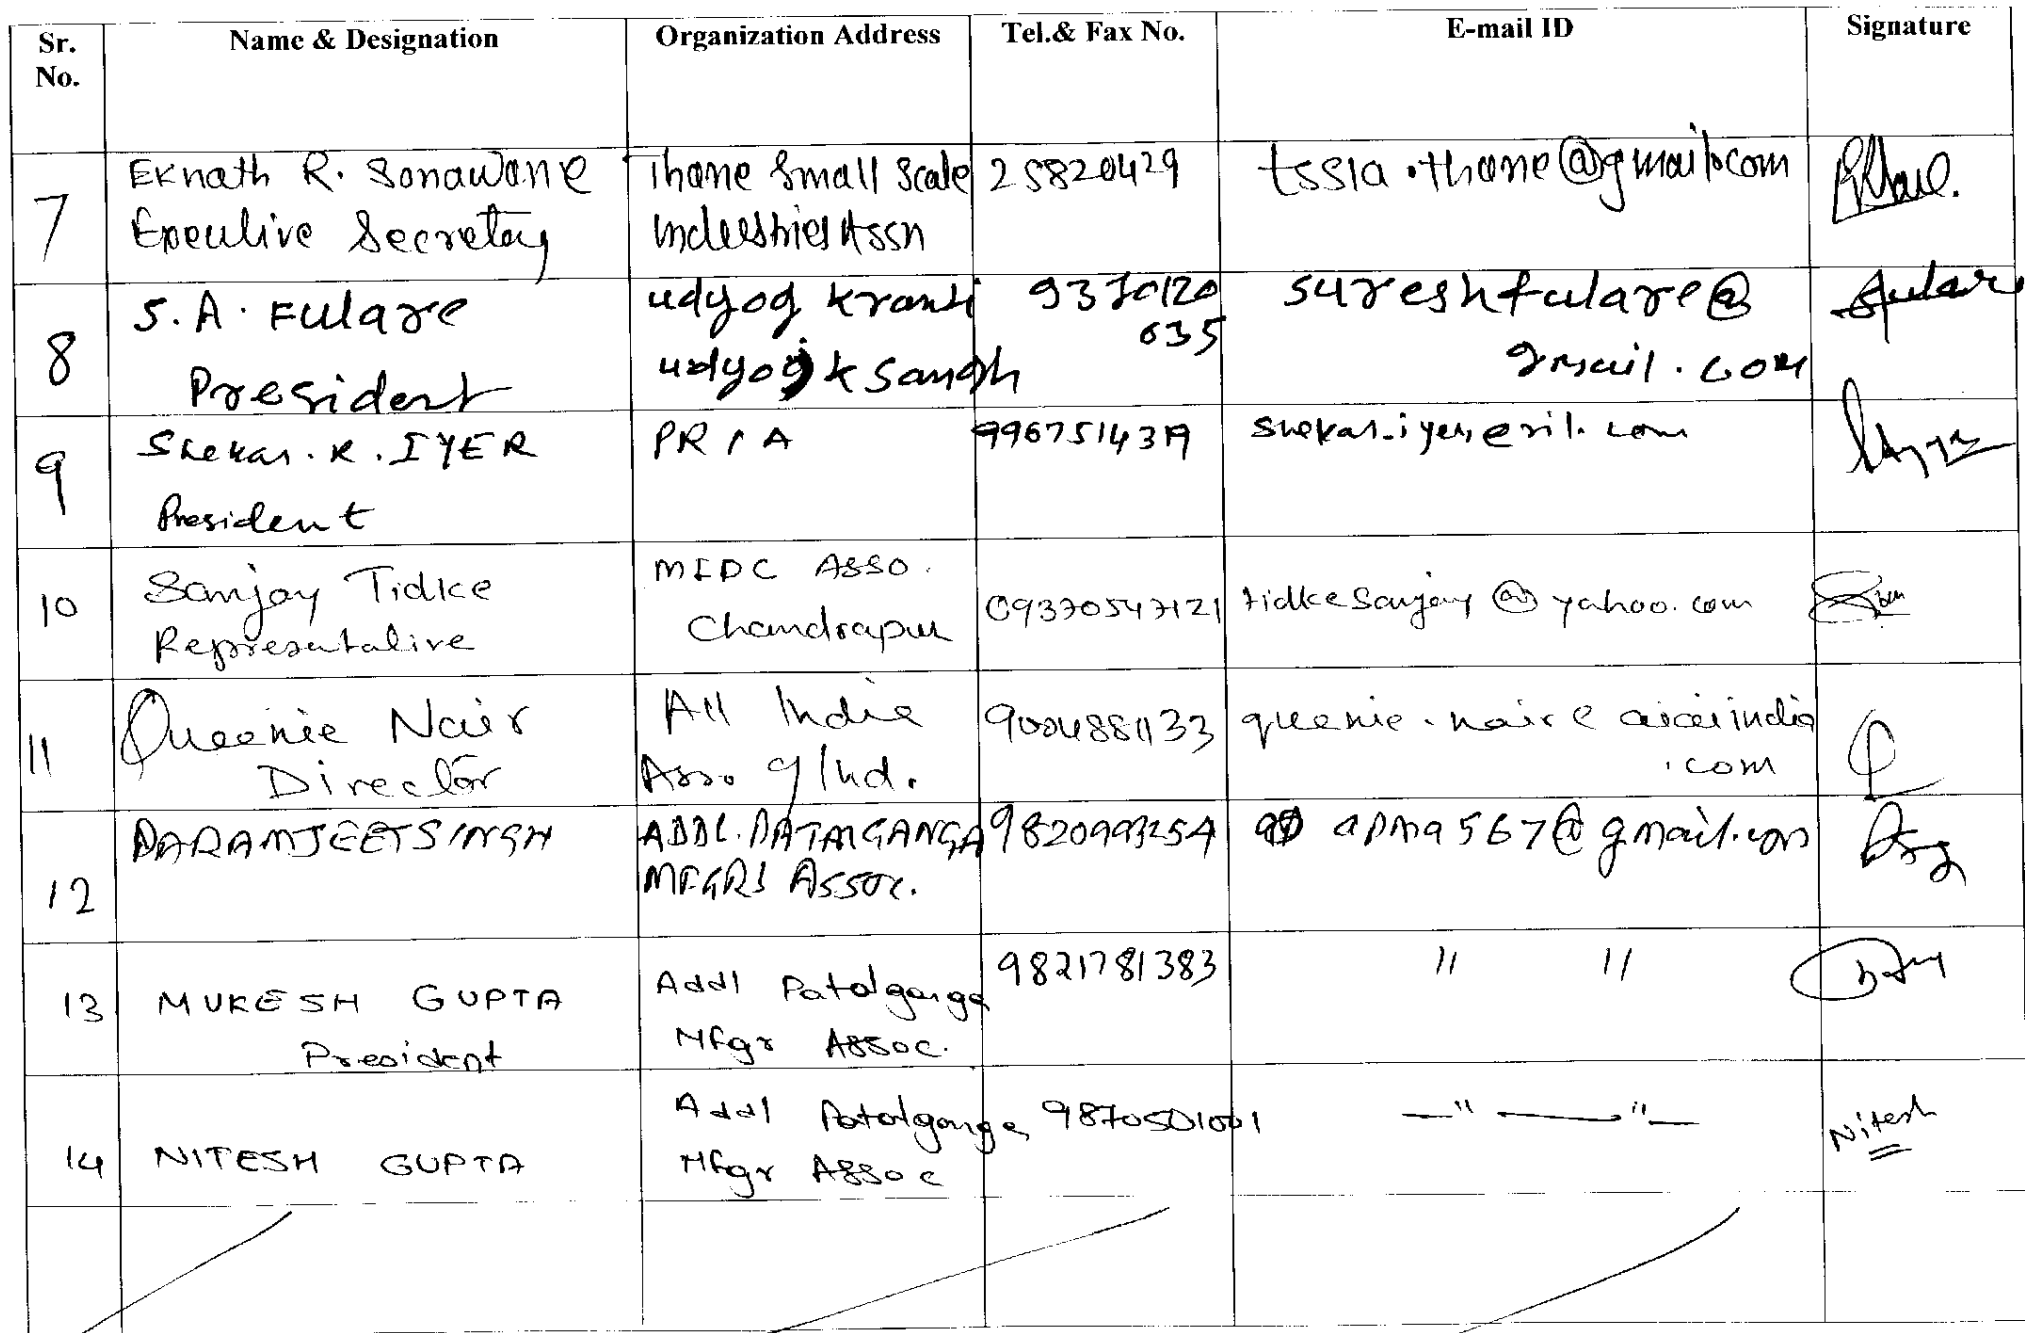 Sr. No.
Name & Designation
Organization Address
Tel.& Fax No.
E-mail ID
Signature
7
Eknath R. Sonawane
Executive Secretary
Thane Small Scale
Industries Assn
25820429
tssia.thane@gmail.com
8
S. A. Fulare
President
udyog kranti
udyojk Sangh
9370120
635
sureshfulare@
gmail.com
Fulare
9
Shekar. R. IYER
President
PRIA
shekar.iyer@ril.com
10
Sanjay Tidke
Representative
MIDC ASSO.
Chandrapur
09370547121
tidkesanjay@yahoo.com
11
Queenie Nair
Director
All India
Asso. of Ind.
9004881133
queenie.nair@aiaiindia
.com
12
PARAMJEETSINGH
ADDL. PATALGANGA
MFGRS ASSOC.
apma567@gmail.com
13
MUKESH GUPTA
President
Addl Patalganga
Mfgr Assoc.
9821781383
" "
14
NITESH GUPTA
Addl Patalganga
Mfgr Assoc
9870501001
—"——"—
Nitesh